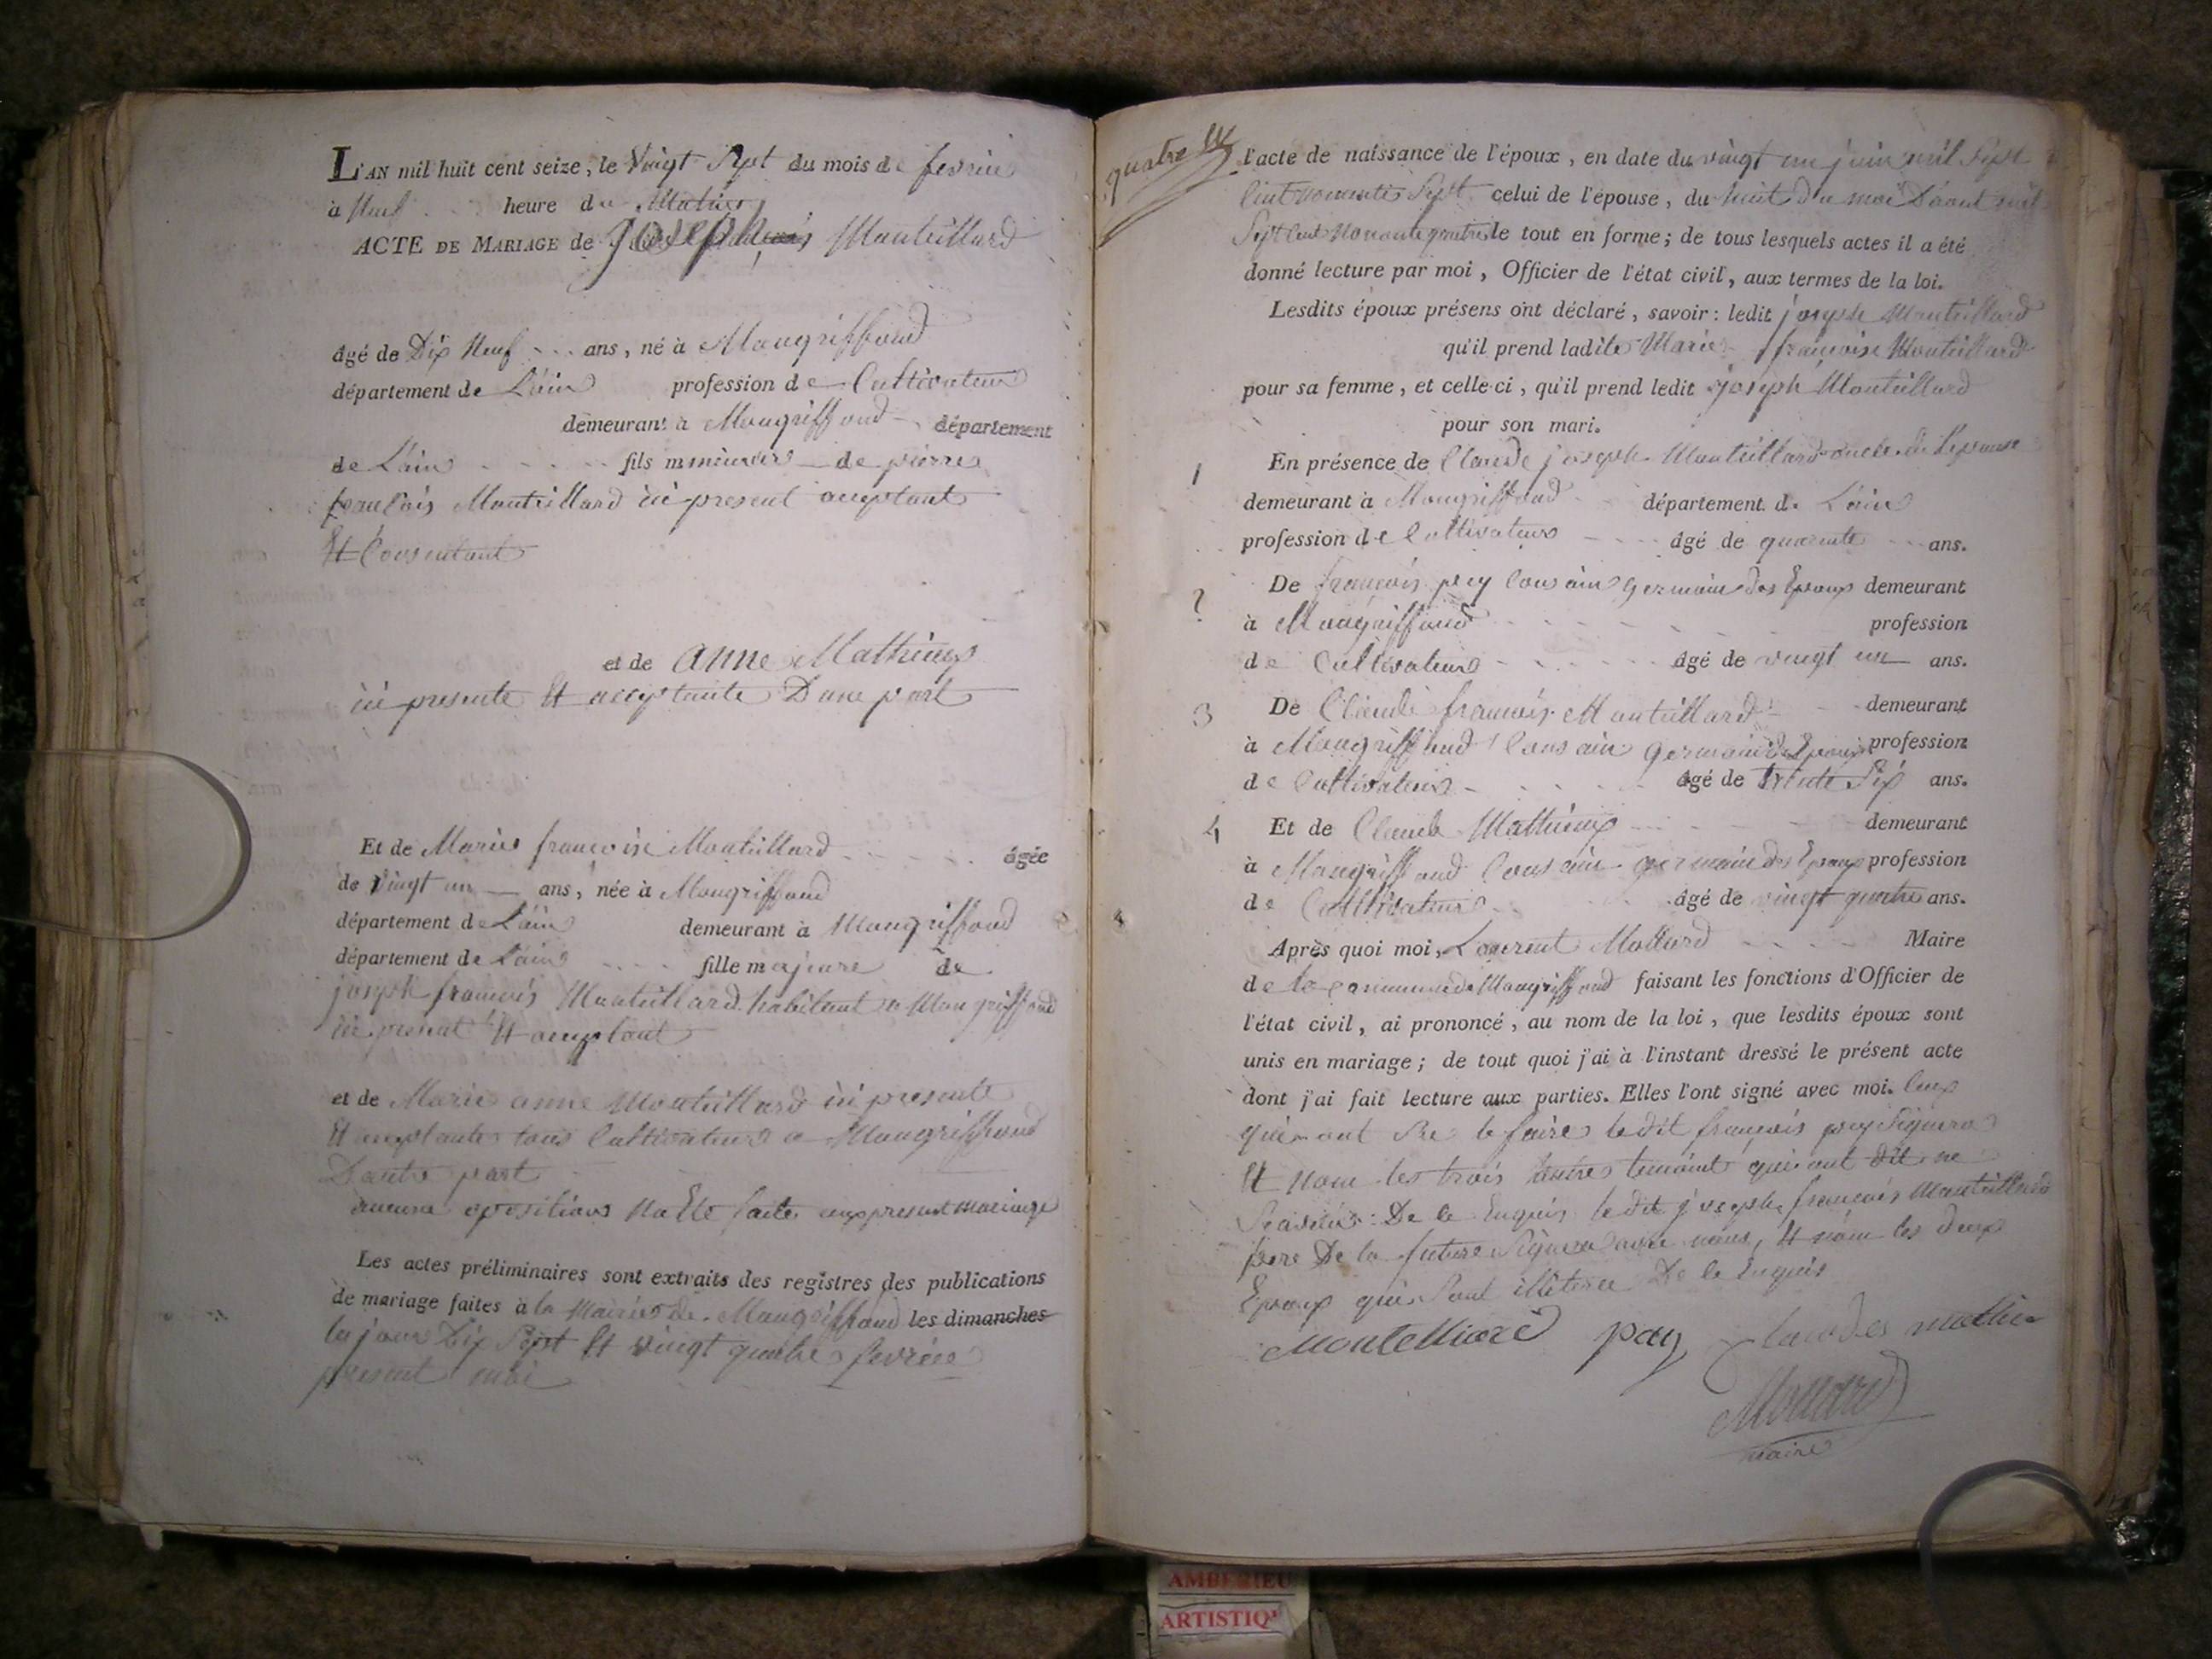 L'AN mil huit cent seize, le Vingt Sept du mois de fevrier
à Neuf heure du Matin
ACTE DE MARIAGE de joseph Monteillard
âgé de Dix Neuf ans, né à Mongriffond
département de L'ain profession de Cultivateur
demeurant à Mongriffond département
de L'ain fils mmineur de pierre
francois Monteillard ici present aceptant
Et Consentant
et de anne Mathieux
ici presente Et acceptante D'une part
Et de Marie françoise Monteillard âgée
de Vingt un ans, née à Mongriffond
département de L'ain demeurant à Mongriffond
département de L'ain fille majeure de
joseph francois Monteillard habitant a Mongriffond
ici present Et aceptant
et de Marie anne Monteillard ici presente
Et aceptante tous Cultivateurs a Mongriffond
D'autre part
aucune opositions Na Eté faite aux present mariage
Les actes préliminaires sont extraits des registres des publications
de mariage faites à la Mairie de Mongriffond les dimanches
les jours Dix Sept Et vingt quatre fevrier
present moi
quatre
l'acte de naissance de l'époux, en date du vingt un juin mil Sept
Cent nonante Sept celui de l'épouse, du huit du moi D'aout mil
Sept Cent Nonante quatre le tout en forme; de tous lesquels actes il a été
donné lecture par moi, Officier de l'état civil, aux termes de la loi.
Lesdits époux présens ont déclaré, savoir: ledit joseph Monteillard
qu'il prend ladite Marie françoise Monteillard
pour sa femme, et celle-ci, qu'il prend ledit joseph Monteillard
pour son mari.
1 En présence de Claude joseph Monteillard oncle de L'epouse
demeurant à Mongriffond département de L'ain
profession de Cultivateur âgé de quarente ans.
2 De francois pey Cousain germain des Epoux demeurant
à Mongriffond profession
de Cultivateur âgé de vingt un ans.
3 De Claude francois Monteillard demeurant
à Mongriffond Cousain germain des Epoux profession
de Cultivateur âgé de trente Six ans.
4 Et de Claude Mathieux demeurant
à Mongriffond Cousain germain des Epoux profession
de Cultivateur âgé de vingt quatre ans.
Après quoi moi, Laurent Mollard Maire
de la commune de Mongriffond faisant les fonctions d'Officier de
l'état civil, ai prononcé, au nom de la loi, que lesdits époux sont
unis en mariage; de tout quoi j'ai à l'instant dressé le présent acte
dont j'ai fait lecture aux parties. Elles l'ont signé avec moi. Ceux
qui ont Su le faire ledit francois pey Signera
Et Non les trois autres temoint qui ont dit ne
Scavoir De ce Enquis ledit joseph francois Monteillard
pere De la future Signera avec nous, Et non les deux
Epoux qui Sont illiterée De ce Enquis
Montelliard pey Claude mathieu
Mollard
maire
AMBERIEU
ARTISTIQ